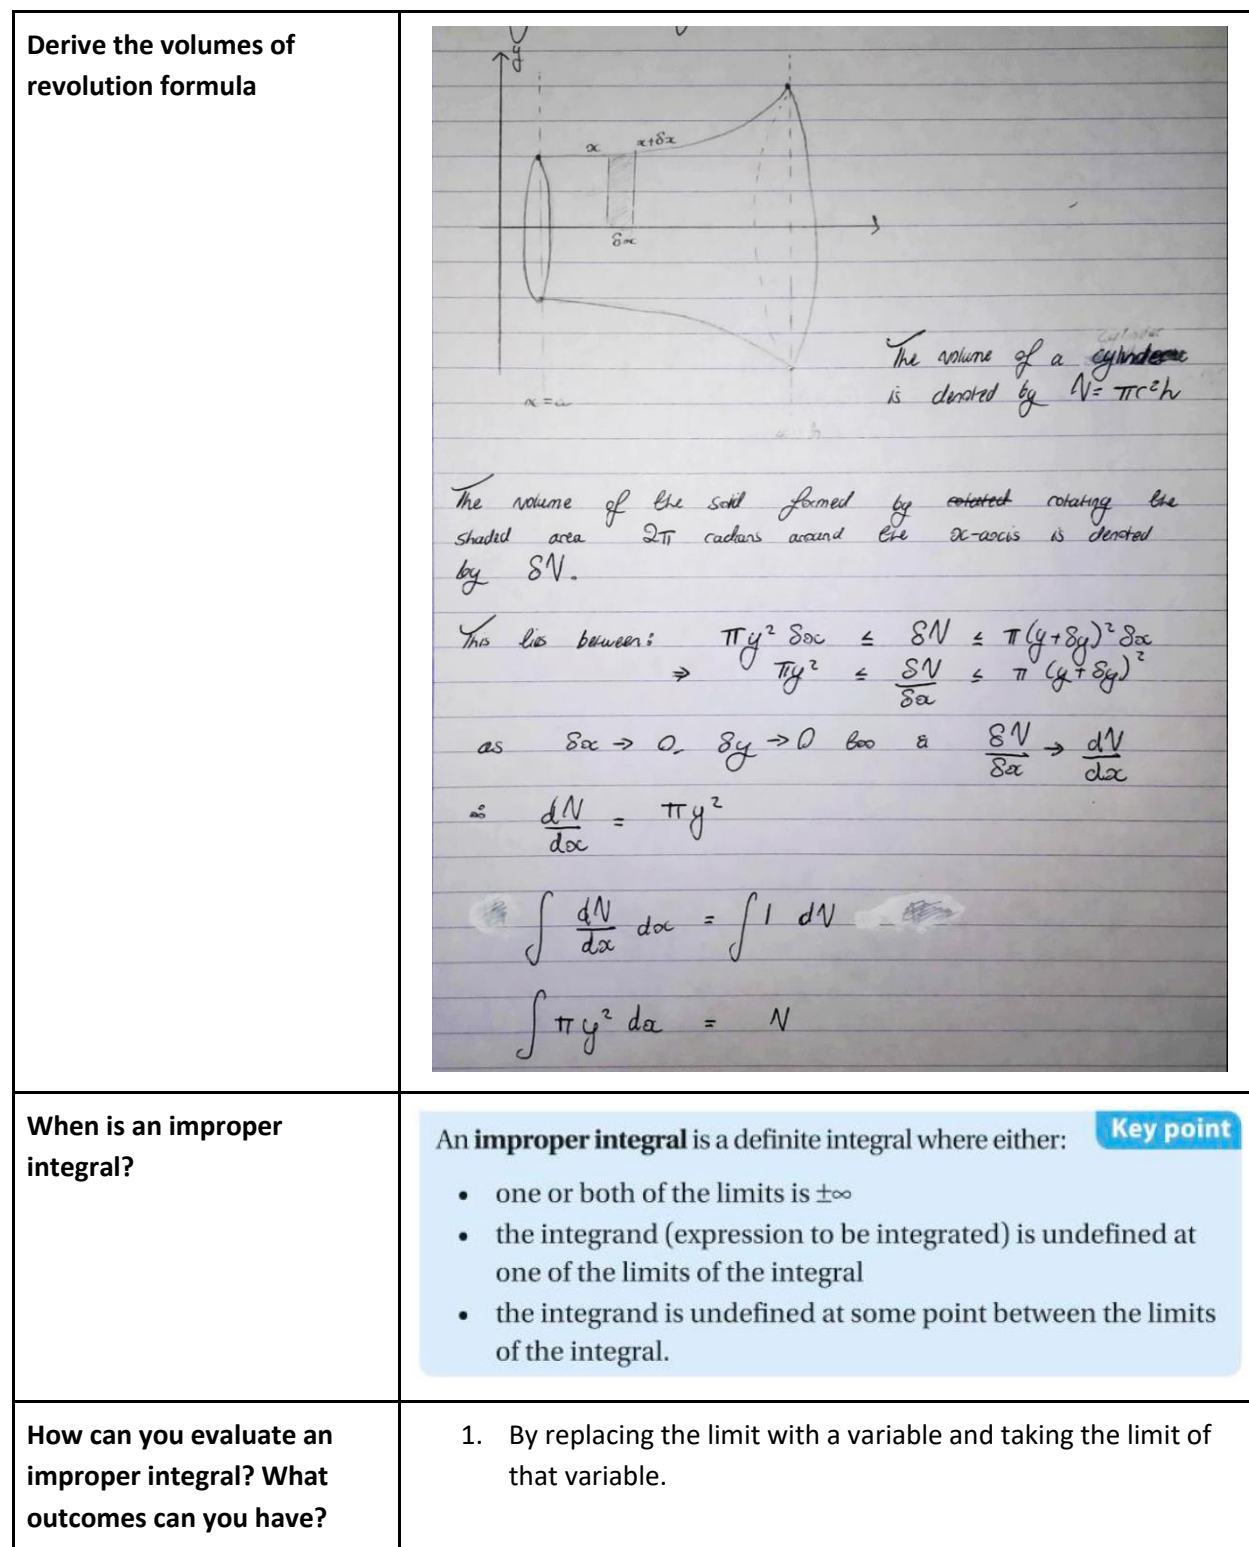 Derive the volumes of
revolution formula
y
x
x+δx
δx
x = a
The volume of a cylinder
is denoted by V = πr²h
The volume of the solid formed by rotated rotating the
shaded area 2π radians around the x-axis is denoted
by δV.
This lies between: πy² δx ≤ δV ≤ π(y+δy)² δx
⇒ πy² ≤ δV/δx ≤ π (y+δy)²
as δx → 0, δy → 0 too & δV/δx → dV/dx
∴ dV/dx = πy²
∫ dV/dx dx = ∫ 1 dV
∫ πy² dx = V
When is an improper
integral?
Key point
An improper integral is a definite integral where either:
• one or both of the limits is ±∞
• the integrand (expression to be integrated) is undefined at
one of the limits of the integral
• the integrand is undefined at some point between the limits
of the integral.
How can you evaluate an
improper integral? What
outcomes can you have?
1. By replacing the limit with a variable and taking the limit of
that variable.